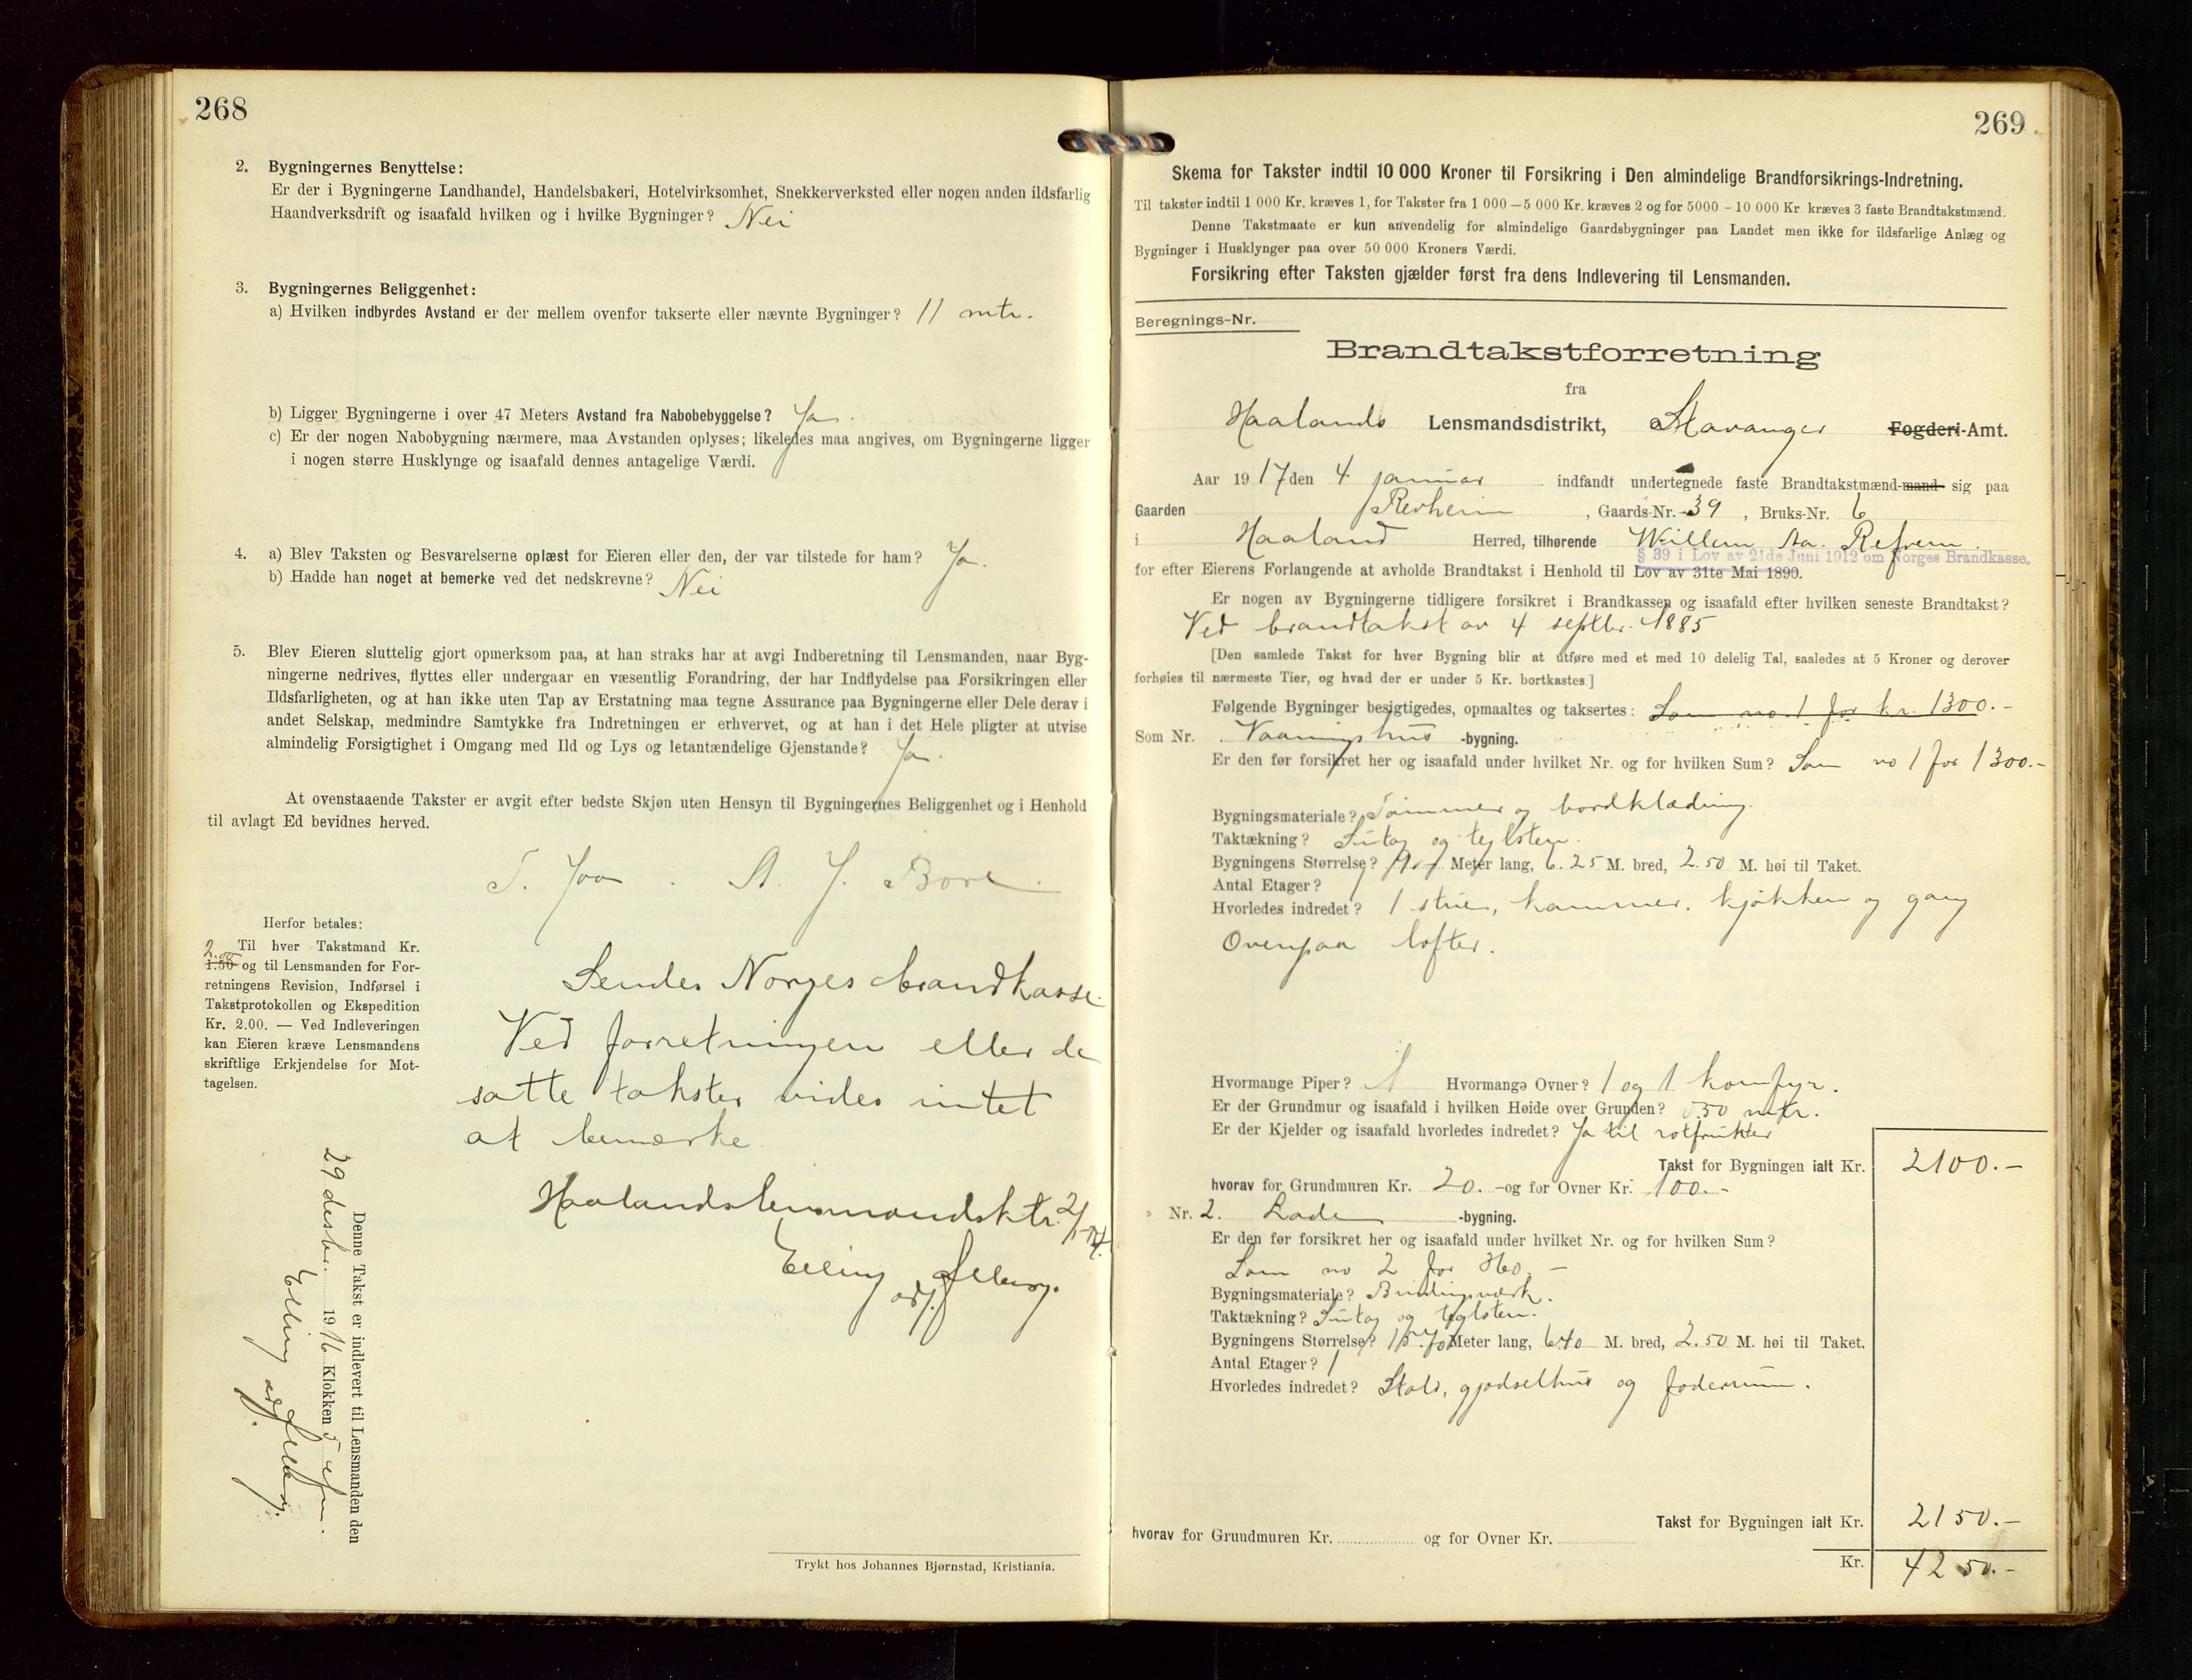 268
2. Bygningernes Benyttelse:
Er der i Bygningerne Landhandel, Handelsbakeri, Hotelvirksomhet, Snekkerverksted eller nogen anden ildsfarlig
Haandverksdrift og isaafald hvilken og i hvilke Bygninger? Nei
3. Bygningernes Beliggenhet:
a) Hvilken indbyrdes Avstand er der mellem ovenfor takserte eller nævnte Bygninger? 11 mtr.
b) Ligger Bygningerne i over 47 Meters Avstand fra Nabobebyggelse? Ja.
c) Er der nogen Nabobygning nærmere, maa Avstanden oplyses; likeledes maa angives, om Bygningerne ligger
i nogen større Husklynge og isaafald dennes antagelige Værdi.
4. a) Blev Taksten og Besvarelserne oplæst for Eieren eller den, der var tilstede for ham? Ja.
b) Hadde han noget at bemerke ved det nedskrevne? Nei
5. Blev Eieren sluttelig gjort opmerksom paa, at han straks har at avgi Indberetning til Lensmanden, naar Byg-
ningerne nedrives, flyttes eller undergaar en væsentlig Forandring, der har Indflydelse paa Forsikringen eller
Ildsfarligheten, og at han ikke uten Tap av Erstatning maa tegne Assurance paa Bygningerne eller Dele derav i
andet Selskap, medmindre Samtykke fra Indretningen er erhvervet, og at han i det Hele pligter at utvise
almindelig Forsigtighet i Omgang med Ild og Lys og letantændelige Gjenstande? Ja.
At ovenstaaende Takster er avgit efter bedste Skjøn uten Hensyn til Bygningernes Beliggenhet og i Henhold
til avlagt Ed bevidnes herved.
T. Jaa. A. J. Bore.
Herfor betales:
Til hver Takstmand Kr.
2.00 1.50 og til Lensmanden for For-
retningens Revision, Indførsel i
Takstprotokollen og Ekspedition
Kr. 2.00. — Ved Indleveringen
kan Eieren kræve Lensmandens
skriftlige Erkjendelse for Mot-
tagelsen.
Sendes Norges brandkasse.
Ved forretningen eller de
satte takster vides intet
at bemærke
Haalandslensmandsktr. 2/1-17.
Elling
adj.
Denne Takst er indlevert til Lensmanden den
29 desbr. 1916 Klokken 5 efm.
Elling
adj.
Trykt hos Johannes Bjørnstad, Kristiania.
269
Skema for Takster indtil 10 000 Kroner til Forsikring i Den almindelige Brandforsikrings-Indretning.
Til takster indtil 1 000 Kr. kræves 1, for Takster fra 1 000 – 5 000 Kr. kræves 2 og for 5000 – 10 000 Kr. kræves 3 faste Brandtakstmænd.
Denne Takstmaate er kun anvendelig for almindelige Gaardsbygninger paa Landet men ikke for ildsfarlige Anlæg og
Bygninger i Husklynger paa over 50 000 Kroners Værdi.
Forsikring efter Taksten gjælder først fra dens Indlevering til Lensmanden.
Beregnings-Nr.
Brandtakstforretning
fra
Haalands Lensmandsdistrikt, Stavanger Fogderi-Amt.
Aar 1917 den 4 januar indfandt undertegnede faste Brandtakstmænd-mand sig paa
Gaarden Revheim, Gaards-Nr. 39, Bruks-Nr. 6
i Haaland Herred, tilhørende Willem Aa. Refvem.
§ 39 i Lov av 21de Juni 1912 om Norges Brandkasse.
for efter Eierens Forlangende at avholde Brandtakst i Henhold til Lov av 31te Mai 1890.
Er nogen av Bygningerne tidligere forsikret i Brandkassen og isaafald efter hvilken seneste Brandtakst?
Ved brandtakst av 4 septbr. 1885
[Den samlede Takst for hver Bygning blir at utføre med et med 10 delelig Tal, saaledes at 5 Kroner og derover
forhøies til nærmeste Tier, og hvad der er under 5 Kr. bortkastes.]
Følgende Bygninger besigtigedes, opmaaltes og taksertes: Som no 1 for kr. 1300.-
Som Nr. Vaaningshus -bygning.
Er den før forsikret her og isaafald under hvilket Nr. og for hvilken Sum? Som no 1 for 1300.-
Bygningsmateriale? Tømmer og bordklædning.
Taktækning? Sutag og teglsten.
Bygningens Størrelse? Meter lang, 6.25 M. bred, 2.50 M. høi til Taket.
Antal Etager? 1
Hvorledes indredet? 1 stue, kammer, kjøkken og gang
Ovenpaa lofter.
Hvormange Piper? 1 Hvormange Ovner? 1 og 1 komfyr.
Er der Grundmur og isaafald i hvilken Høide over Grunden? 0.50 mtr.
Er der Kjelder og isaafald hvorledes indredet? Ja til rotfrukter
Takst for Bygningen ialt Kr. 2100.-
hvorav for Grundmuren Kr. 20.- og for Ovner Kr. 100.-
Nr. 2. Lade -bygning.
Er den før forsikret her og isaafald under hvilket Nr. og for hvilken Sum?
Som no 2 for 360.-
Bygningsmateriale? Bindingsværk.
Taktækning? Sutag og teglsten.
Bygningens Størrelse? 15.70 Meter lang, 6.40 M. bred, 2.50 M. høi til Taket.
Antal Etager? 1
Hvorledes indredet? Stald, gjødselhus og foderrum.
Takst for Bygningen ialt Kr. 2150.-
hvorav for Grundmuren Kr. og for Ovner Kr.
Kr. 4250.-